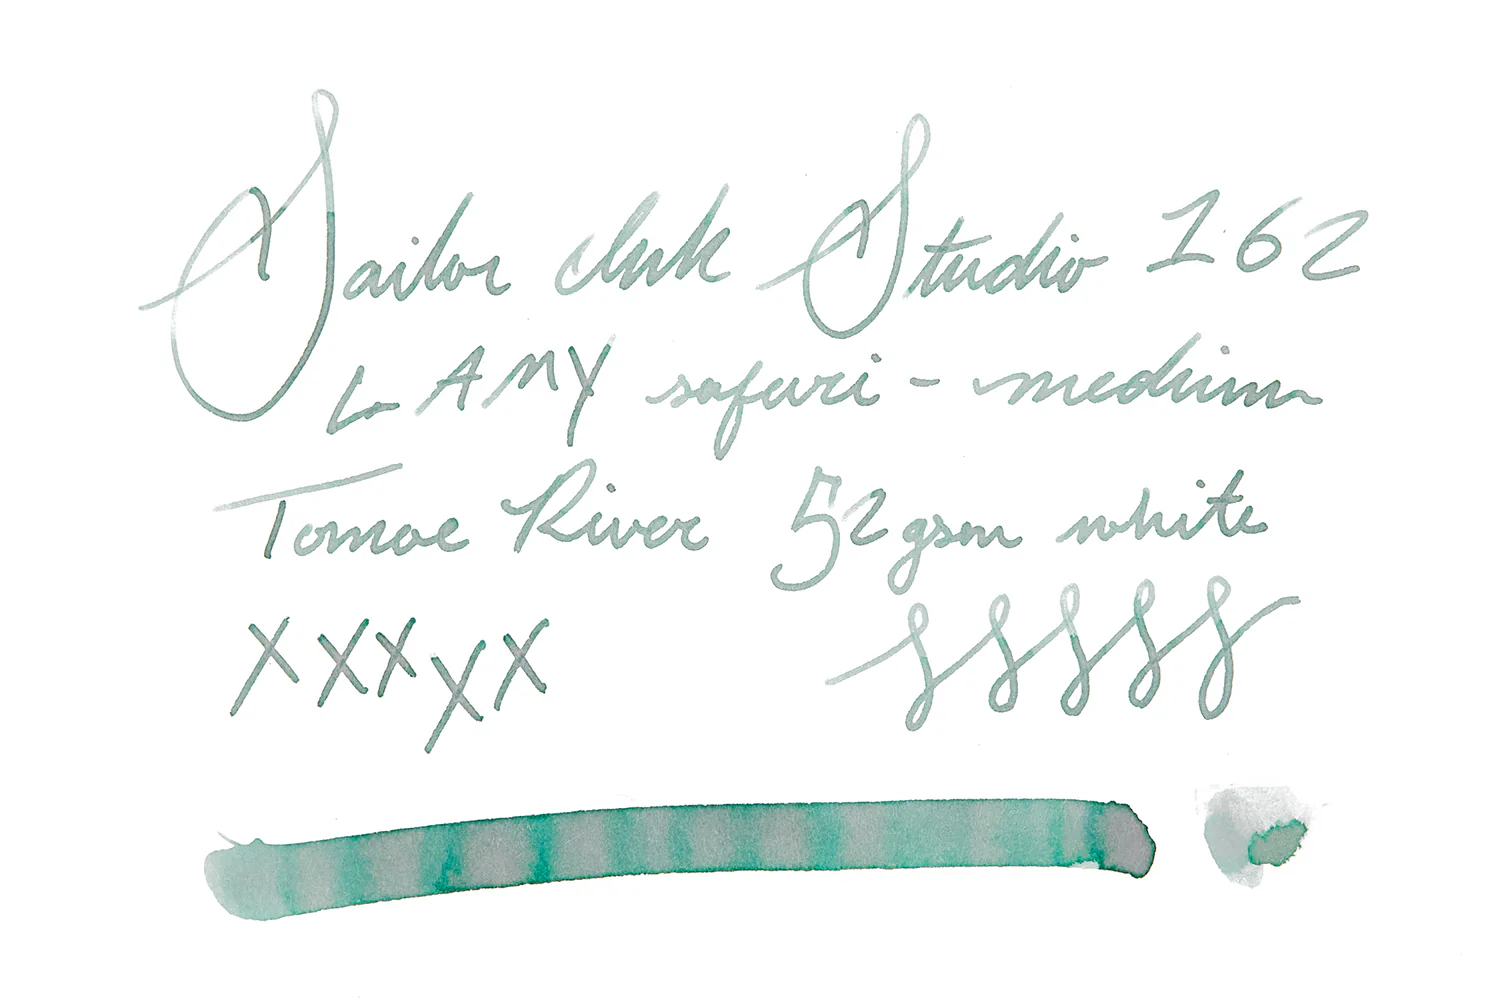 Sailor Ink Studio 162
LAMY safari - medium
Tomoe River 52gsm white
x x x x x